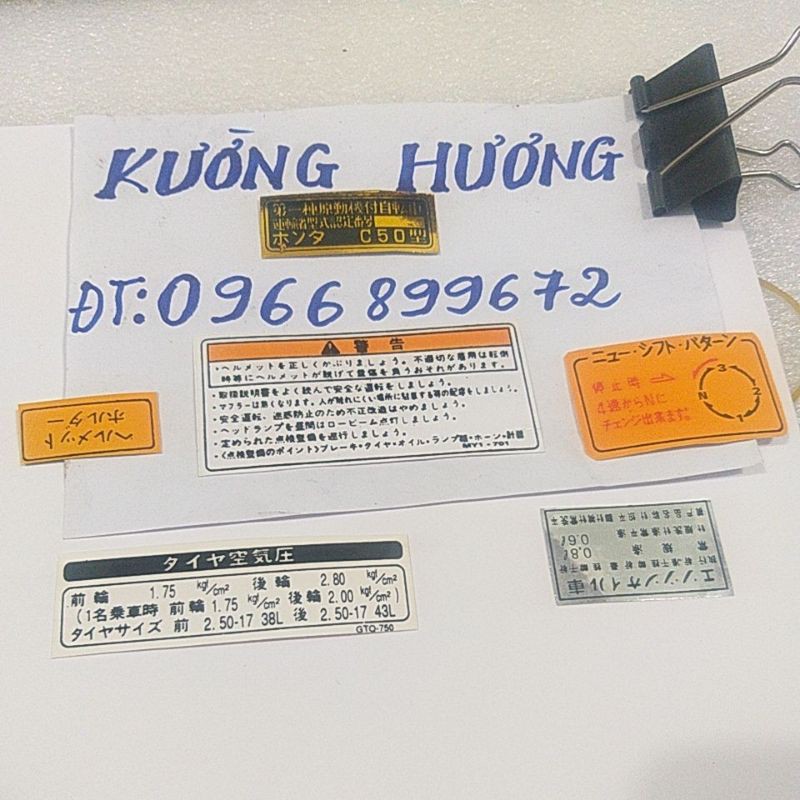 KƯỜNG HƯƠNG
第一種原動機付自転車
運輸省型式認定番号
ホンダ C50型
ĐT:0966 899672
警告
・ヘルメットを正しくかぶりましょう。不適切な着用は転倒
時等にヘルメットが脱げて重傷を負うおそれがあります。
・取扱説明書をよく読んで安全な運転をしましょう。
・マフラーは熱くなります。人が触れにくい場所に駐車する等の配慮をしましょう。
・安全運転、迷惑防止のため不正改造はやめましょう。
・ヘッドランプを昼間はロービーム点灯しましょう。
・定められた点検整備を遂行しましょう。
・〈点検整備のポイント〉ブレーキ・タイヤ・オイル・ランプ類・ホーン・計器
MY1-701
ニュー・シフト・パターン
停止時
4速からNに
チェンジ出来ます。
N 1 2 3
ヘルメット
ホルダー
タイヤ空気圧
前輪 1.75 kg/cm² 後輪 2.80 kg/cm²
(1名乗車時 前輪 1.75 kg/cm² 後輪 2.00 kg/cm²)
タイヤサイズ 前 2.50-17 38L 後 2.50-17 43L
GTO-750
0.8ℓ
0.6ℓ